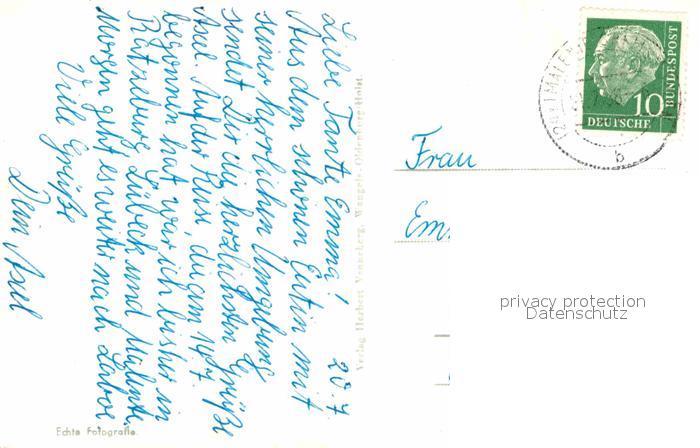 28.7.
Liebe Tante Emma!
Aus dem schönen Eutin mit
seiner herrlichen Umgebung
sendet Dir die herzlichsten Grüße
Axel. Auf der Reise, die am 19.7.
begonnen hat, war ich bisher in
Ratzeburg, Lübeck und Malente.
Morgen geht es weiter nach Laboe.
Viele Grüße
Dein Axel
Echte Fotografie.
Verlag Herbert Venneberg, Wangels-Oldenburg-Holst.
Frau
Em.
privacy protection
Datenschutz
10
DEUTSCHE
BUNDESPOST
b